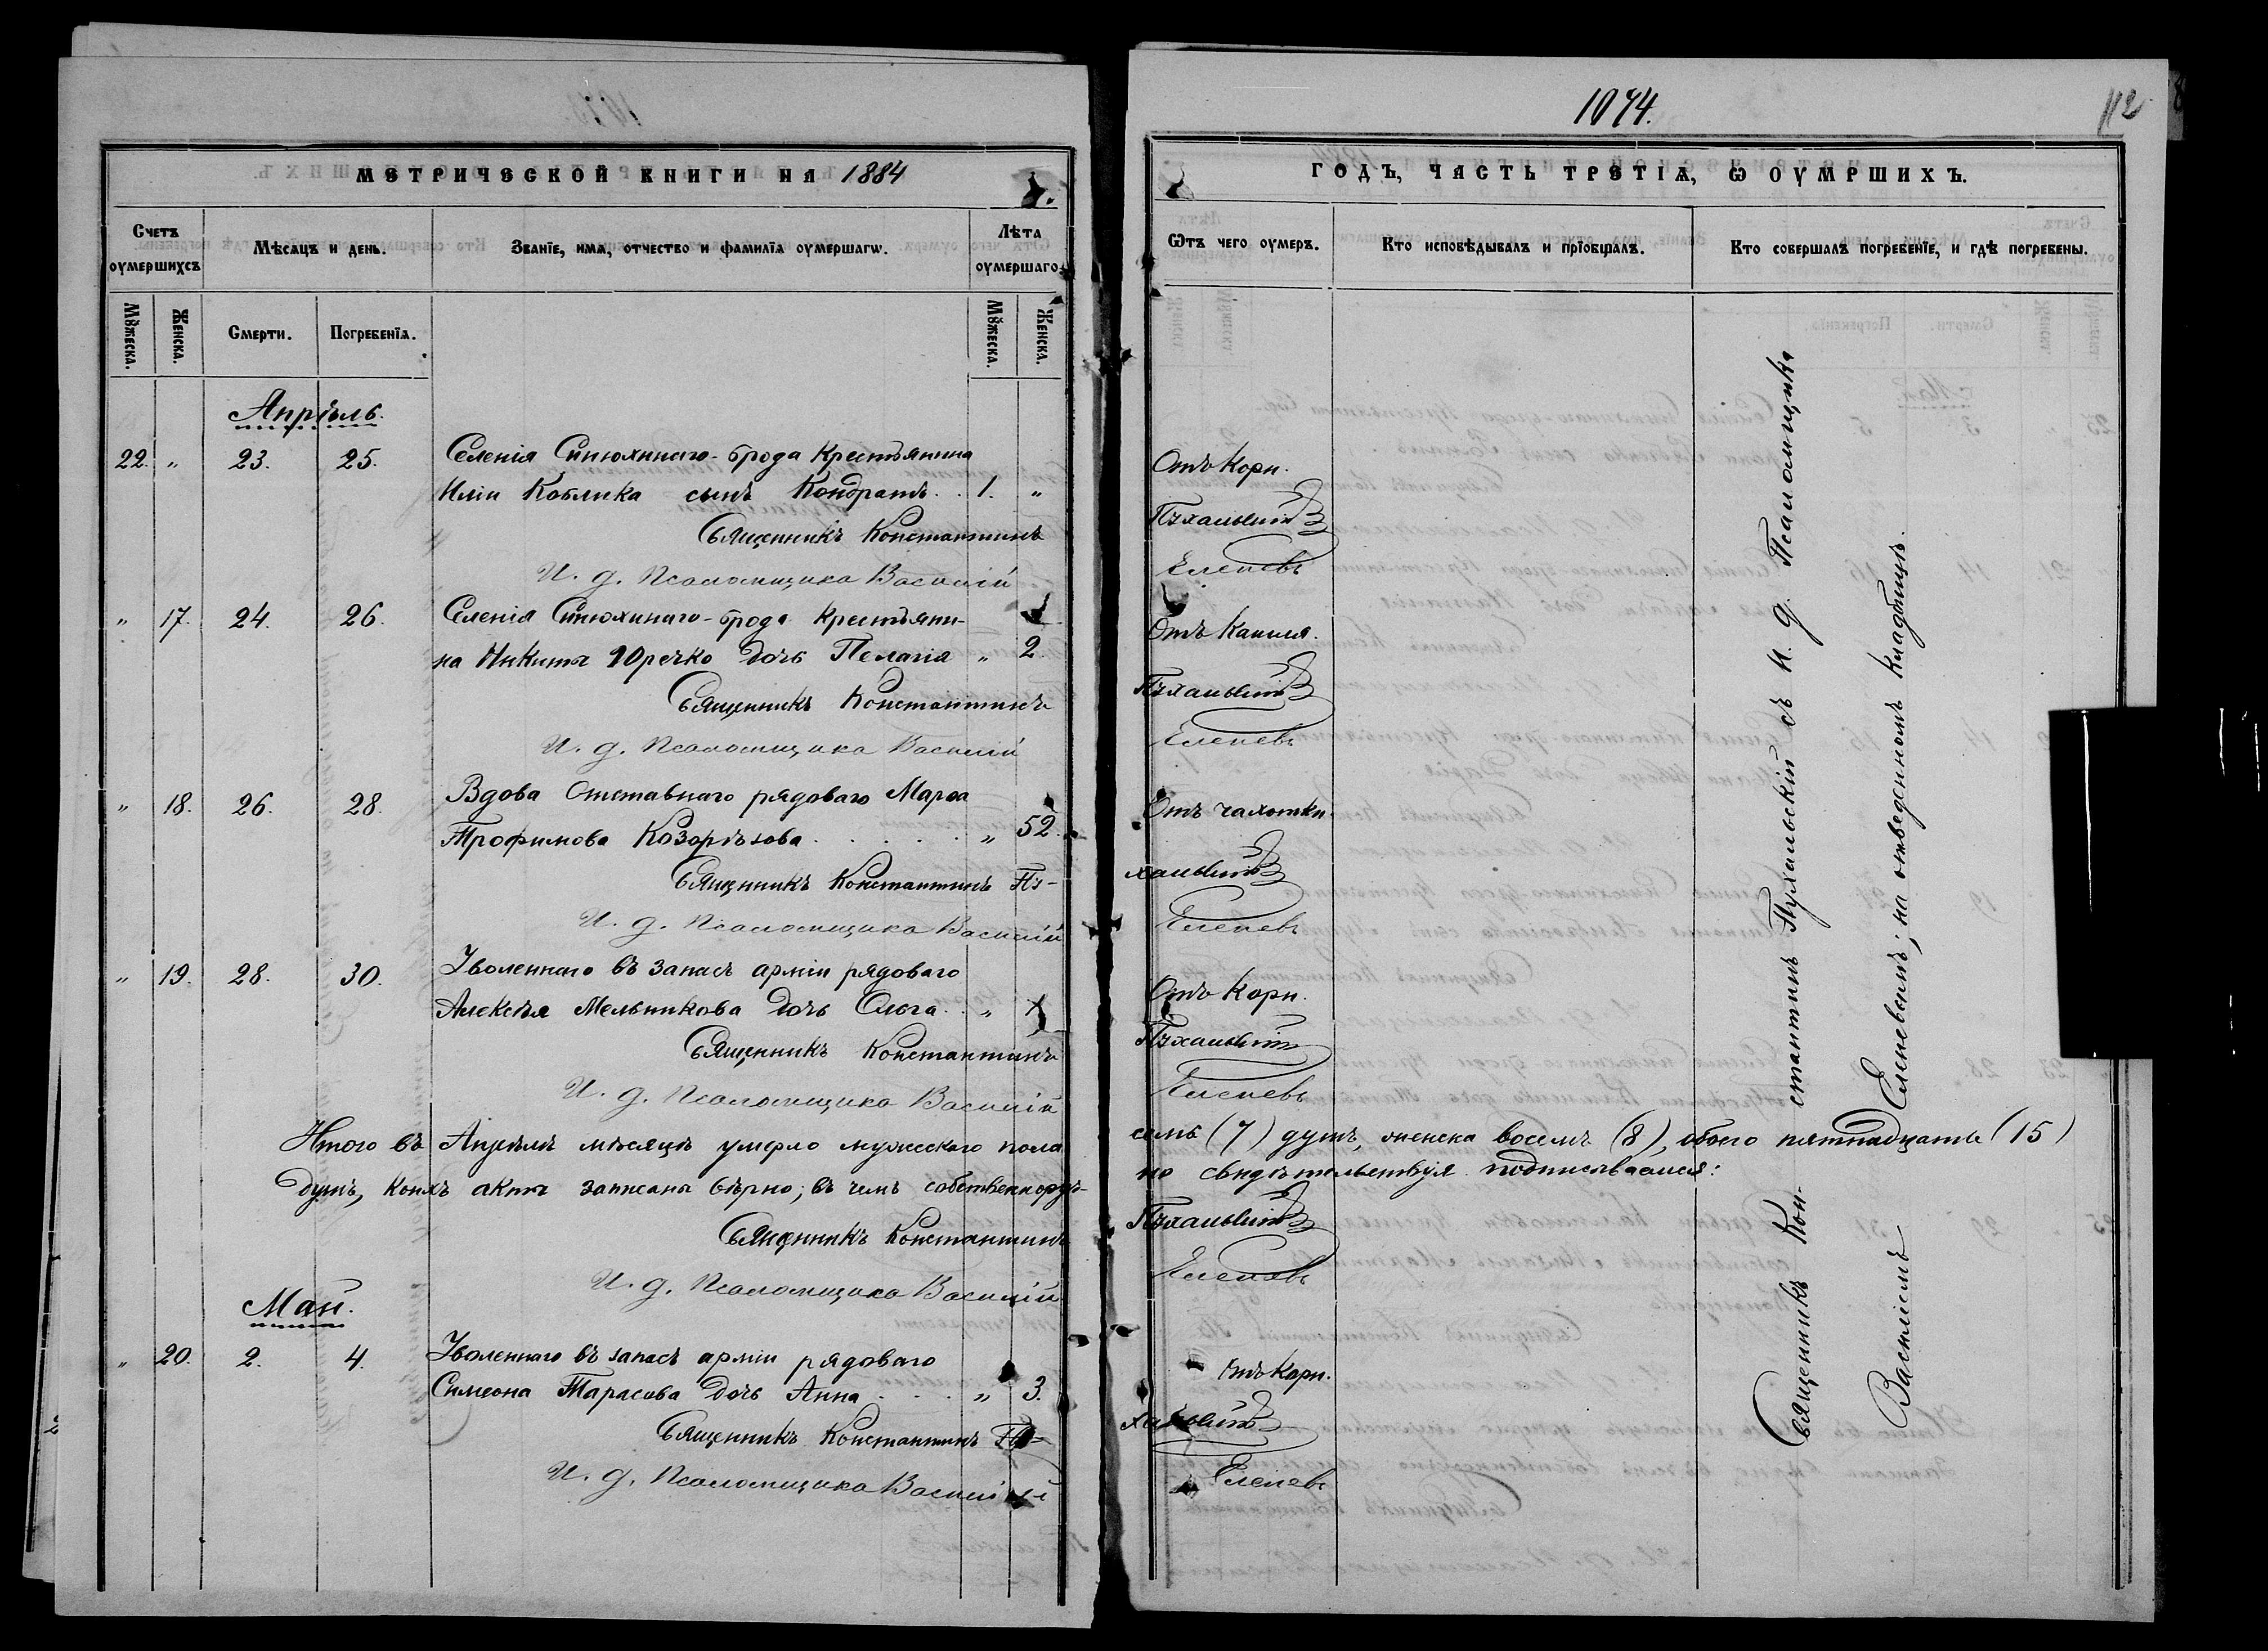 МЕТРИЧЕСКОЙ КНИГИ НА 1884
Счетъ оумершихсъ
Мѣсяцъ и день.
Званїе, имя, отчество и фамилїя оумершагѡ.
Лѣта оумершаго
Мужеска.
Женска.
Смерти.
Погребенїя.
Мужеска.
Женска.
Апрѣль.
22. " 23. 25. Селенія Синюхинаго-брода Крестьянина
Иліи Коблика сынъ Кондратъ. . 1. "
Священникъ Константинъ
И. д. Псаломщика Василій
" 17. 24. 26. Селенія Синюхинаго-брода Крестьяни-
на Никиты Юречко дочь Пелагія " 2.
Священникъ Константинъ
И. д. Псаломщика Василій
" 18. 26. 28. Вдова Отставнаго рядоваго Марѳа
Трофимова Козорѣзова . . . . . " 52.
Священникъ Константинъ Пу-
И. д. Псаломщика Василій
" 19. 28. 30. Уволеннаго въ запасъ арміи рядоваго
Алексѣя Мельникова дочь Ольга. . " 1
Священникъ Константинъ
И. д. Псаломщика Василій
Итого въ Апрѣлѣ мѣсяцѣ умерло мужескаго пола
душъ, коихъ акты записаны вѣрно; въ чемъ собственноруч-
Священникъ Константинъ
И. д. Псаломщика Василій
Май.
" 20. 2. 4. Уволеннаго въ запасъ арміи рядоваго
Симеона Тарасова дочь Анна . . . " 3.
Священникъ Константинъ Пу-
И. д. Псаломщика Василій
1074.
112
ГОДЪ, ЧАСТЬ ТРЕТІЯ, Ѡ ОУМРШИХЪ.
Ѿтъ чего оумеръ.
Кто исповѣдывалъ и прїобщалъ.
Кто совершалъ погребенїе, и гдѣ погребены.
Отъ Кори.
Пухальскій
Елепевъ
Отъ Кашля.
Пухальскій
Елепевъ
Отъ чахотки.
хальскій
Елепевъ
Отъ Кори.
Пухальскій
Елепевъ
семь (7) душъ, женска восемь (8), обоего пятнадцать (15)
но свидѣтельствуя подписываемся:
Пухальскій
Елепевъ
Отъ Кори.
хальскій
Елепевъ
Священникъ Кон-стантинъ Пухальскій съ И. д. Псаломщика
Василіемъ Елепевымъ; на отведенномъ кладбищѣ.